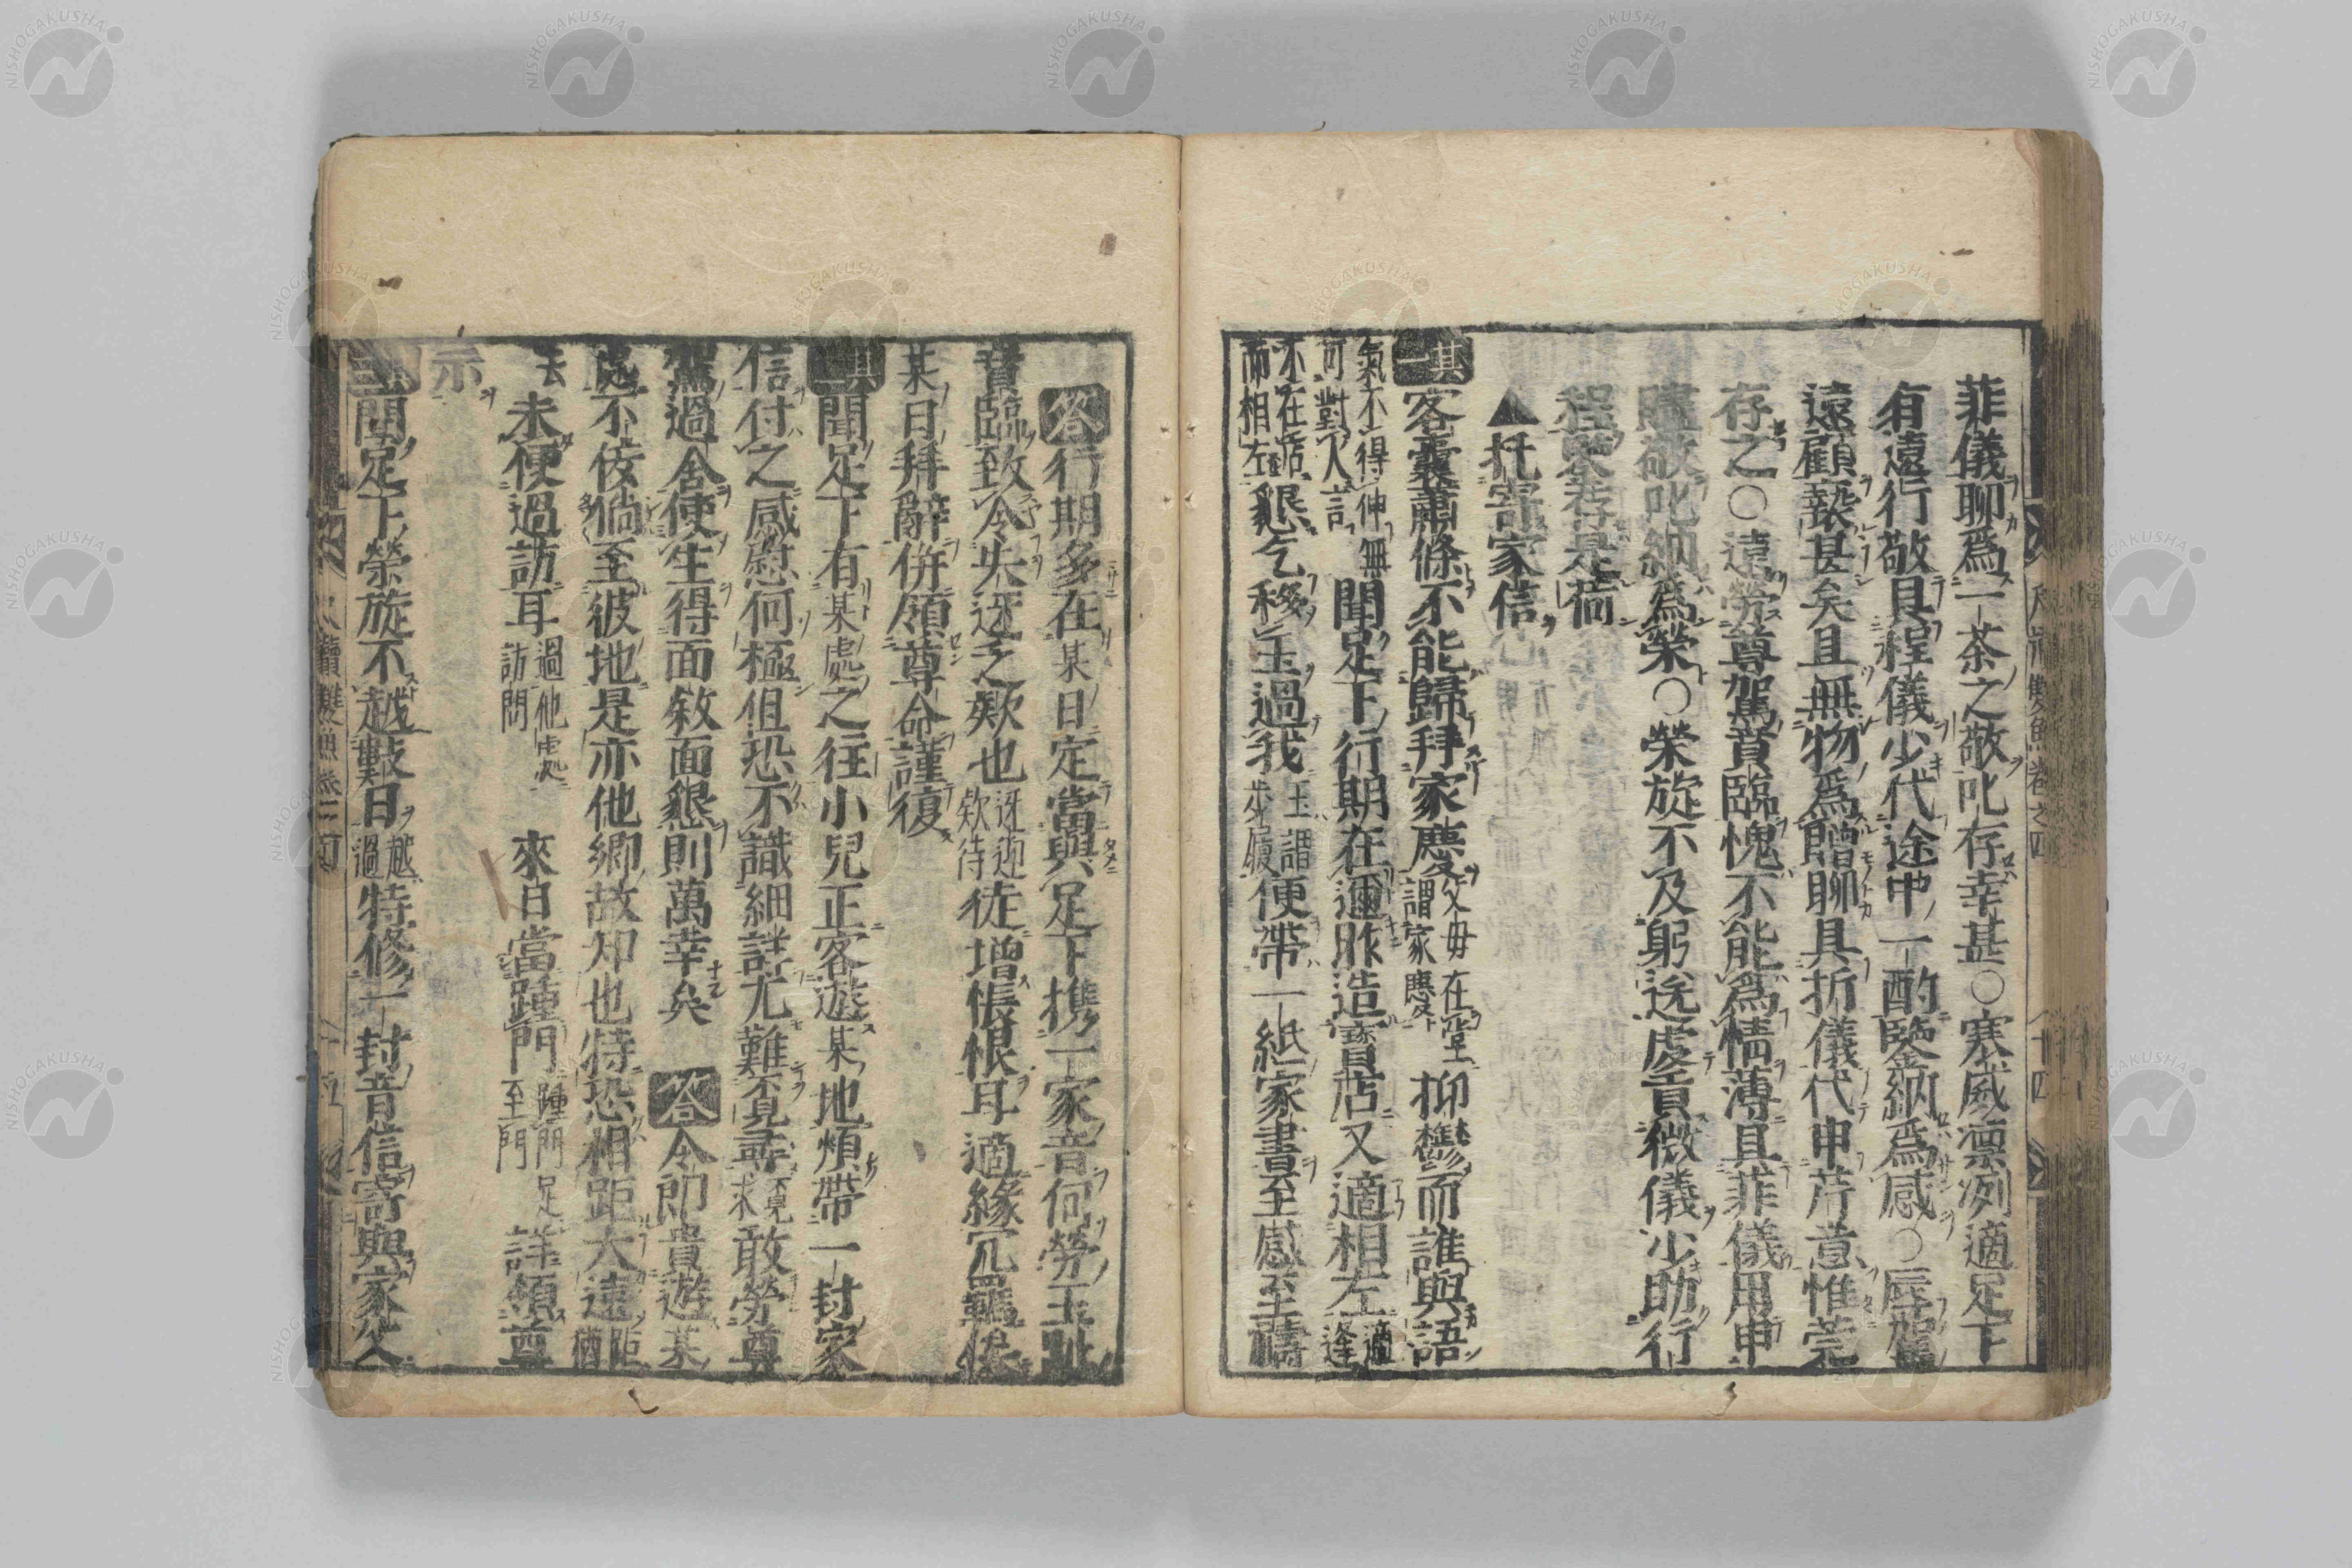 菲儀聊爲一茶之敬叱存幸甚○寒威凛冽適足下
有遠行敬具程儀少代途中一酌鑒納爲感○辱駕
遠顧褻甚矣且無物爲贈聊具折儀代申芹意惟莞
存之○遠勞尊駕賁臨愧不能爲情薄具菲儀用申
贐敬叱納爲榮○榮旋不及躬送處責微儀少助行
程笑存是荷
▲托寄家信
其一客囊蕭條不能歸拜家慶父母在堂謂家慶抑鬱而誰與語
氣不得伸無可對人言聞足下行期在邇昨造寶店又適相左適逢
不在店而相左至懇乞移玉過我玉謂步履便帶一紙家書至感至禱
答行期多在某日定當與足下携一家音何勞玉趾
賁臨致令失迓之欵也迓迎欵待徒增悵恨耳適緣冗羈俟
某日拜辭併領尊命謹復
其聞足下有某處之往小兒正客遊某地煩帶一封家
信付之感慰何極但恐不識細詳尤難覔尋覔求敢勞尊
駕過舍使生得面敘面懇則萬幸矣 答今即貴遊某
處不佞倘至彼地是亦他鄉故知也特恐相距太遠距猶
去未便過訪耳過他處訪問來日當踵門踵門足至門詳領尊
示
三聞足下榮旋不越數日越過特修一封音信寄與家父
尺牘雙魚卷之四 十四